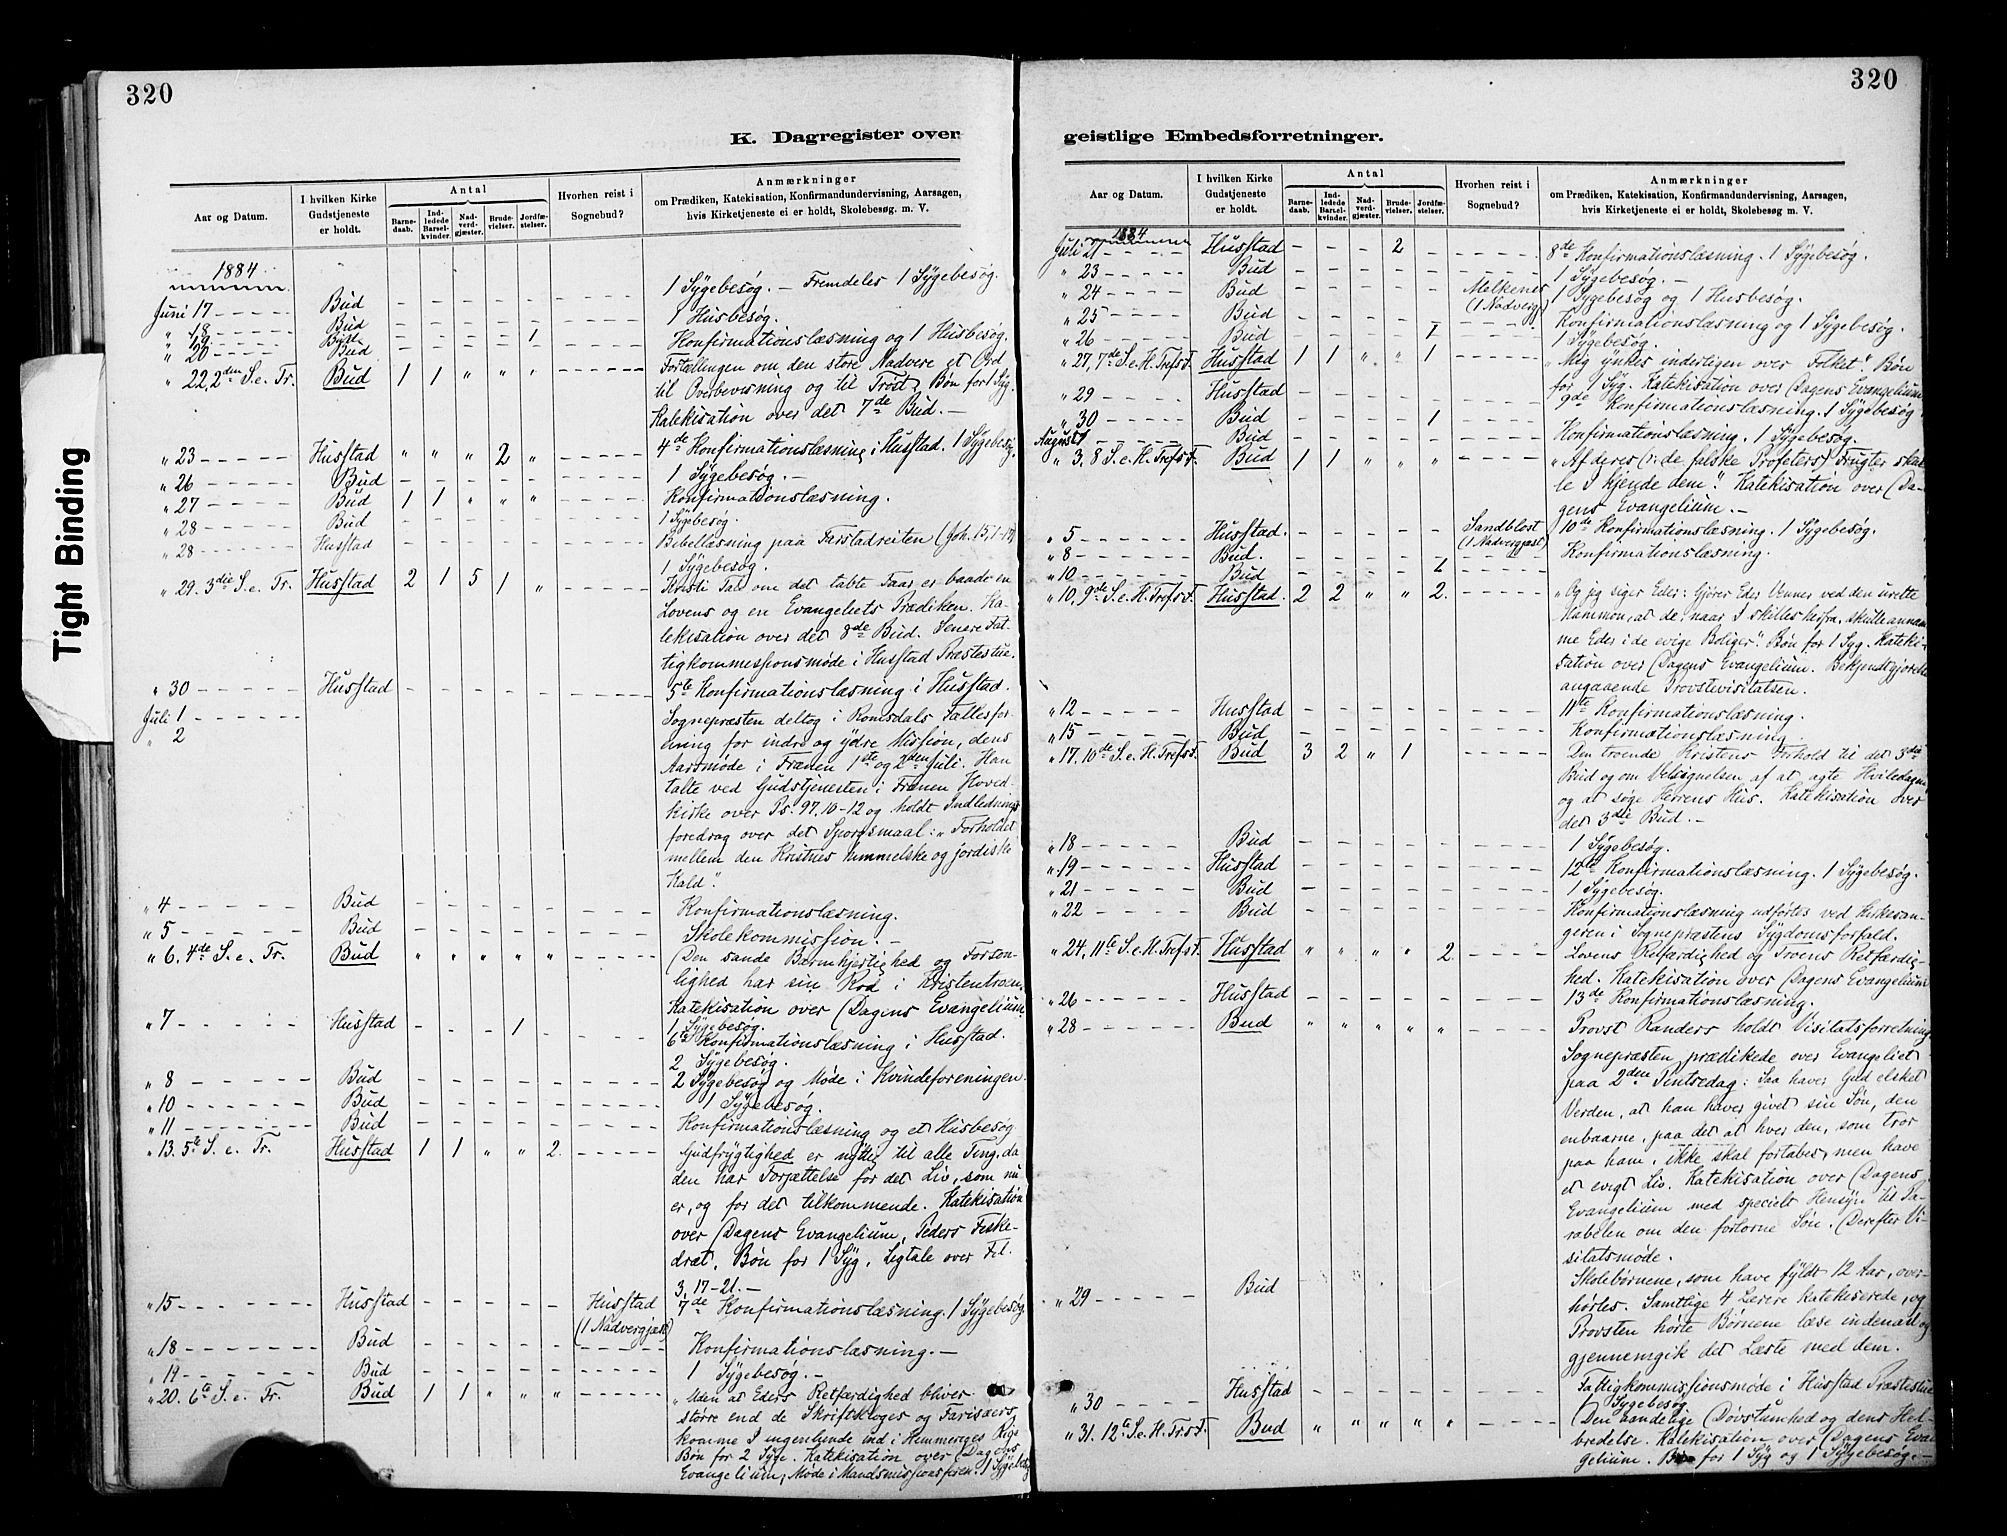 320
K. Dagregister over
Aar og Datum. I hvilken Kirke Gudstjeneste er holdt. Antal Barnedaab. Indledede Barselkvinder. Nadverdgjæster. Brudevielser. Jordfæstelser. Hvorhen reist i Sognebud? Anmærkninger om Prædiken, Katekisation, Konfirmandundervisning, Aarsagen, hvis Kirketjeneste ei er holdt, Skolebesøg. m. V.
1884
Juni 17 Bud 1 Sygebesøg. — Fremdeles 1 Sygebesøg.
" 18 Bud 1 Husbesøg.
" 19 1
" 20 Bud Konfirmationslæsning og 1 Husbesøg.
" 22, 2den S. e. Tr. Bud 1 1 " " " Fortællingen om den store Nadvere et Ord
til Overbevisning og til Trøst. Bøn for 1 Syg.
Katekisation over det 7de Bud. —
" 23 Husstad " " " 2 " 4de Konfirmationslæsning i Husstad. 1 Sygebesøg.
" 26 Bud 1 Sygebesøg. —
" 27 Bud 1 1 " " " Konfirmationslæsning.
" 28 Bud 1 Sygebesøg.
" 28 Husstad Bibellæsning paa Farstadreiten (Joh. 15, 1-14)
1 Sygebesøg.
" 29. 3die S. e. Tr. Husstad 2 1 5 1 " Kristi Tale om det tabte Faar er baade en
Lovens og en Evangeliets Prædiken. Ka-
tekisation over det 8de Bud. Senere Fat-
tigkommissionsmøde i Husstad Præstestue.
" 30 Husstad 5te Konfirmationslæsning i Husstad.
Juli 1 Sognepræsten deltog i Romsdals Fællesfor-
" 2 ening for indre og ydre Mission, dens
Aarsmøde i Frænen 1ste og 2den Juli. Han
talte ved Gudstjenesten i Frænen Hoved-
kirke over Ps. 97, 10-12 og holdt Indlednings-
foredrag over det Spørgsmaal: "Forholdet
mellem den Kristnes himmelske og jordiske
Kald".
" 4 Bud Konfirmationslæsning.
" 5 Bud Skolekommission. —
" 6. 4de S. e. Tr. Bud " " " " " Den sande Barmhjertighed og Forson-
lighed har sin Rod i Kristentroen.
Katekisation over Dagens Evangelium.
" 7 Husstad 1 1 Sygebesøg.
6te Konfirmationslæsning i Husstad.
2 Sygebesøg.
" 8 Bud 2 Sygebesøg og Møde i Kvindeforeningen
" 10 Bud 1 Sygebesøg.
" 11 Bud Konfirmationslæsning og et Husbesøg
" 13. 5te S. e. Tr. Husstad 1 1 " " 2. Gudfrygtighed er nyttig til alle Ting, da
den har Forjættelse for det Liv, som nu
er, og for det tilkommende. Katekisation
over Dagens Evangelium, Peders Fiske-
dræt. Bøn for 1 Syg. Ligtale over Fil.
3, 17-21. —
" 15 Husstad Husstad (1 Nadvergjæst) 7de Konfirmationslæsning. 1 Sygebesøg
" 18 Bud Konfirmationslæsning. —
" 19 Bud 1 Sygebesøg. —
" 20. 6te S. e. Tr. Bud 1 1 " " " "Uden at Eders Retfærdighed bliver
større end de Skriftkloges og Farisæers
komme I ingenlunde ind i Himmeriges Rige
Bøn for 2 Syge. Katekisation over Dagens
Evangelium, Møde i Mandsmissionsforen. 1 Sygebesøg
320
geistlige Embedsforretninger.
Aar og Datum. I hvilken Kirke Gudstjeneste er holdt. Antal Barnedaab. Indledede Barselkvinder. Nadverdgjæster. Brudevielser. Jordfæstelser. Hvorhen reist i Sognebud? Anmærkninger om Prædiken, Katekisation, Konfirmandundervisning, Aarsagen, hvis Kirketjeneste ei er holdt, Skolebesøg. m. V.
1884
Juli 21 Husstad 2 8de Konfirmationslæsning. 1 Sygebesøg.
" 23 Bud 1 Sygebesøg. —
" 24 Bud (1 Nadverg) 1 Sygebesøg og 1 Husbesøg.
" 25 Bud Konfirmationslæsning og 1 Sygebesøg.
" 26 Bud 1 1 Sygebesøg.
" 27, 7de S. e. H. Trefs. F. Husstad 1 1 " " 1 "Mig ynkes inderligen over Folket". Bøn
for 1 Syg. Katekisation over Dagens Evangelium
" 29 Husstad 9de Konfirmationslæsning. 1 Sygebesøg
" 30 Bud 1
August 1 Bud Konfirmationslæsning. 1 Sygebesøg.
" 3. 8 S. e. H. Trefs. F. Bud 1 1 " " " "Af deres (: de falske Profeters) Frugter skul-
le I kjende dem." Katekisation over Da-
gens Evangelium. —
" 5 Husstad. Sandblost (1 Nadvergjæst) 10de Konfirmationslæsning. 1 Sygebesøg.
" 8 Bud. Konfirmationslæsning.
" 10 Bud 1
" 10, 9de S. e. H. Trefs. F. Husstad. 2 2 " " 2. "Og jeg siger Eder: Gjører Eder Venner ved den urette
Mammon, at de, naar I skilles herfra, skulle annam-
me Eder i de evige Boliger". Bøn for 1 Syg. Kateki-
sation over Dagens Evangelium. Bekjendtgjørelse
angaaende Provstevisitatsen.
" 12 Husstad 11te Konfirmationslæsning.
" 15 Bud Konfirmationslæsning
" 17. 10de S. e. H. Trefs. F. Bud 3 2 " 1 Den troende Kristens Forhold til det 3die
Bud og om Velsignelsen af at agte Hviledagen
og at søge Herrens Hus. Katekisation over
det 3die Bud. —
" 18 Bud 1 Sygebesøg.
" 19 Husstad 12te Konfirmationslæsning. 1 Sygebesøg.
" 21 Bud 1 Sygebesøg.
" 22 Bud Konfirmationslæsning udførtes ved Kirkesan-
geren i Sognepræstens Sygdomsforfald.
" 24, 11te S. e. H. Trefs. F. Husstad " " " " 2 Lovens Retfærdighed og Troens Retfærdig-
hed. Katekisation over Dagens Evangelium
" 26 Husstad 13de Konfirmationslæsning.
" 28 Bud " " " " " Provst Randers holdt Visitatsforretning
Sognepræsten prædikede over Evangeliet
paa 2den Pintsedag: Saa haver Gud elsket
Verden, at han haver givet sin Søn, den
enbaarne, paa det at hver den, som tror
paa ham, ikke skal fortabes, men have
et evigt Liv. Katekisation over Dagens
Evangelium med specielt Hensyn til Pa-
rabelen om den fortorne Søn. Derefter Vi-
sitatsmøde.
" 29 Bud Skolebørnene, som have fyldt 12 Aar, over-
hørtes. Samtlige 4 Lærere katekiserede, og
Provsten hørte Børnene læse indenad og
gjennemgik det Læste med dem.
" 30 Husstad Fattigkommissionsmøde i Husstad Præstestue
Sygebesøg.
" 31. 12te S. e. H. Tr. s. F. Bud " " " " " Den aandelige Døvstumhed og dens Hel-
bredelse. Katekisation over Dagens Evan-
gelium. Bøn for 1 Syg og 1 Sygebesøg. —
Tight Binding